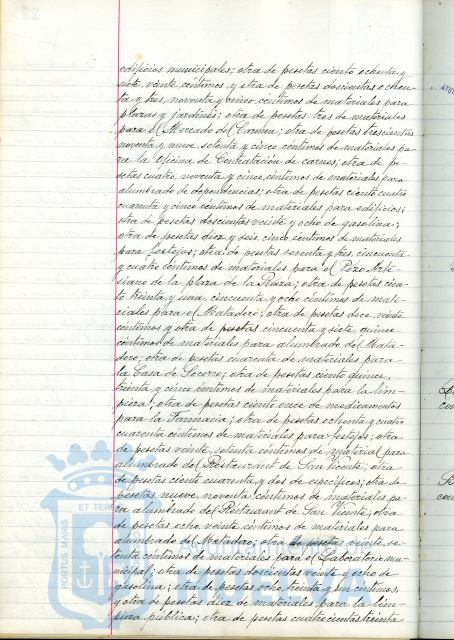 edificios municipales; otra de pesetas ciento ochenta y
siete, veinte céntimos y otra de pesetas doscientas ochen-
ta y tres, noventa y cinco céntimos de materiales para
plazas y jardines; otra de pesetas tres de materiales
para el Mercado del Carmen; otra de pesetas trescientas
noventa y nueve, setenta y cinco céntimos de materiales pa-
ra la Oficina de Contratación de carnes; otra de pe-
setas cuatro, noventa y cinco céntimos de materiales para
alumbrado de dependencias; otra de pesetas ciento cuatro
cuarenta y cinco céntimos de materiales para edificios;
otra de pesetas doscientas veinte y ocho de gasolina;
otra de pesetas diez y seis, cinco céntimos de materiales
para festejos; otra de pesetas sesenta y tres, cincuenta
y cuatro céntimos de materiales para el Pozo Arte-
siano de la plaza de la Raza; otra de pesetas cien-
to treinta y una, cincuenta y ocho céntimos de mate-
riales para el Matadero; otra de pesetas doce, veinte
céntimos y otra de pesetas cincuenta y siete, quince
céntimos de materiales para alumbrado del Mata-
dero; otra de pesetas cuarenta de materiales para
la Casa de Socorro; otra de pesetas ciento quince,
treinta y cinco céntimos de materiales para la lim-
pieza; otra de pesetas ciento once de medicamentos
para la Farmacia; otra de pesetas ochenta y cuatro
cuarenta céntimos de materiales para festejos; otra
de pesetas veinte, setenta céntimos de material para
alumbrado del Restaurant de San Vicente; otra
de pesetas ciento cuarenta y dos de específicos; otra de
pesetas nueve, noventa céntimos de materiales pa-
ra alumbrado del Restaurant de San Vicente, otra
de pesetas ocho veinte céntimos de materiales para
alumbrado del Matadero; otra de pesetas veinte se-
tenta céntimos de materiales para el Laboratorio mu-
nicipal; otra de pesetas doscientas veinte y ocho de
gasolina; otra de pesetas ocho, treinta y un céntimos,
y otra de pesetas diez de materiales para la lim-
pieza pública; otra de pesetas cuatrocientas treinta
PORTUS MARIS
ET TER